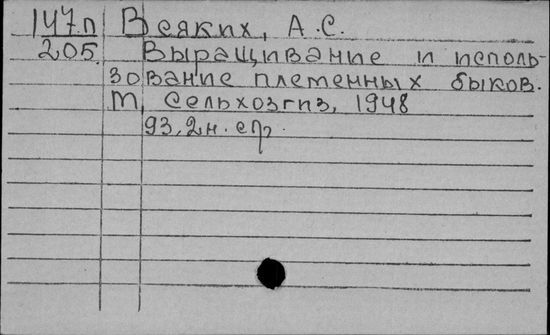 147п Всяких, А.С.
205 Выращивание и исполь-
зование племенных быков.
М, Сельхозгиз, 1948
93, 2н. стр.